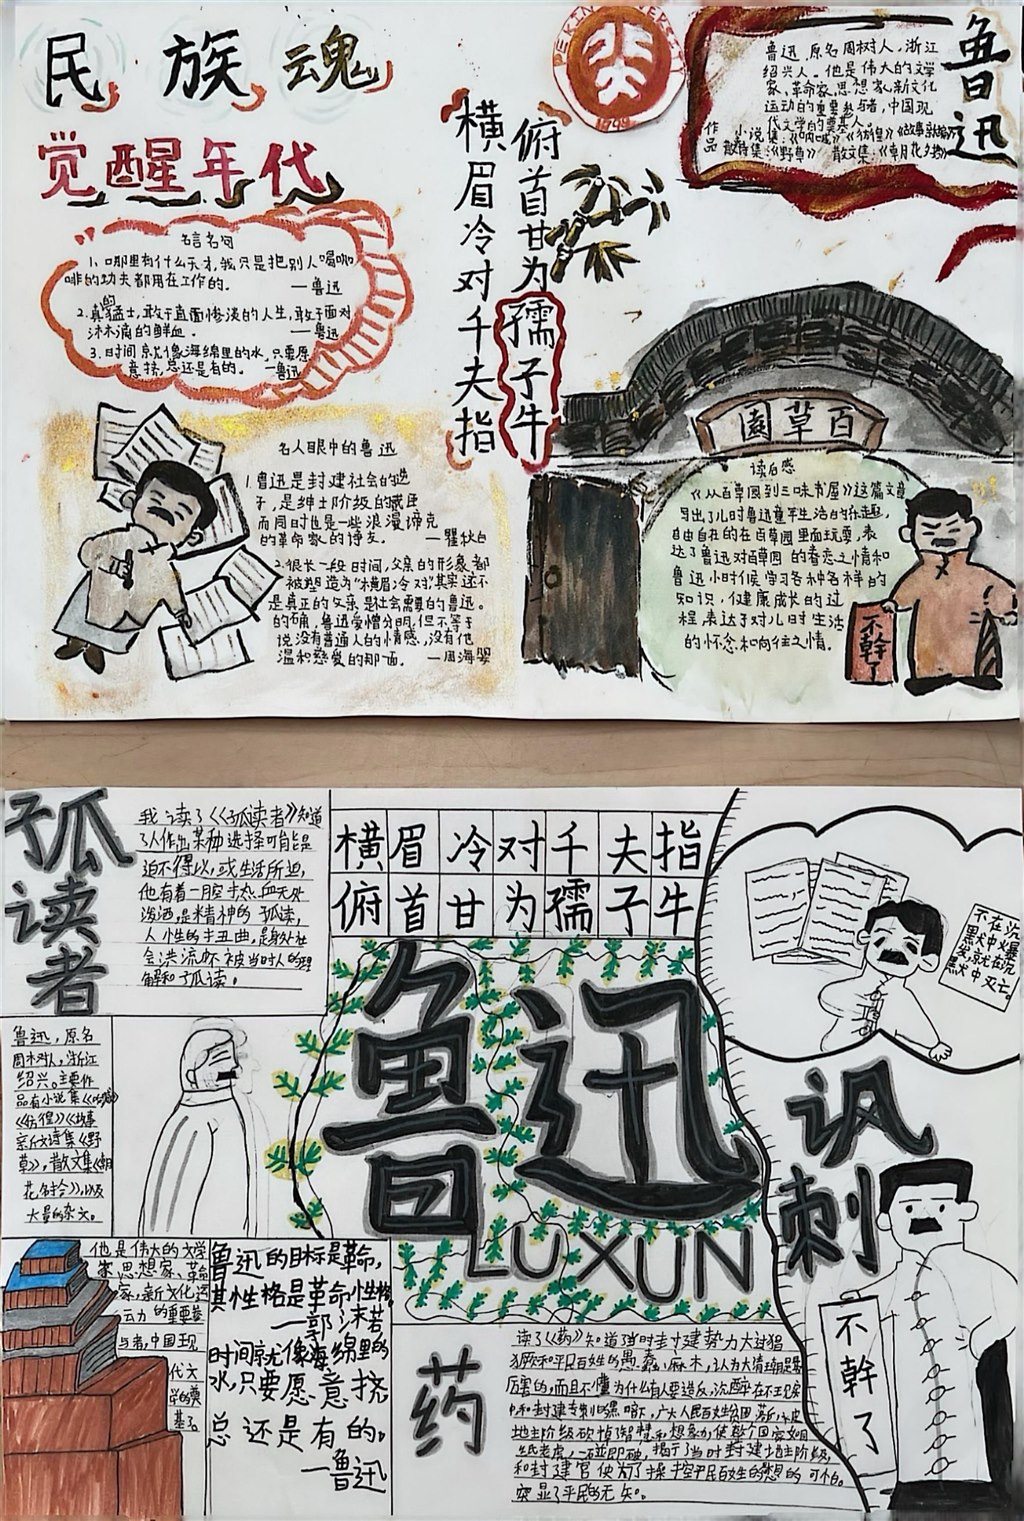 民族魂
觉醒年代
PEKIN VERSITY
1949
横眉冷对千夫指
俯首甘为孺子牛
鲁迅
鲁迅,原名周树人,浙江
绍兴人。他是伟大的文学
家,革命家,思想家,新文化
运动的重要参与者,中国现
代文学的奠基人。
作品 小说集:《呐喊》《彷徨》《故事新编》
散诗集:《野草》 散文集:《朝花夕拾》
名言名句
1、哪里有什么天才,我只是把别人喝咖
啡的功夫都用在工作的。 —鲁迅
2.真的猛士,敢于直面惨淡的人生,敢于面对
淋淋滴的鲜血。 —鲁迅
3、时间就像海绵里的水,只要愿
意挤,总还是有的。 —鲁迅
名人眼中的鲁迅
1.鲁迅是封建社会的逆
子,是绅士阶级的贰臣
而同时也是一些浪漫谛克
的革命家的诤友。 —瞿秋白
2.很长一段时间,父亲的形象都
被塑造为“横眉冷对”,其实这不
是真正的父亲,是社会需要的鲁迅。
的确,鲁迅爱憎分明,但不等于
说没有普通人的情感,没有他
温和慈爱的那一面。 —周海婴
百草園
读后感
《从百草园到三味书屋》这篇文章
写出了儿时鲁迅童年生活的乐趣,
自由自在的在百草园里面玩耍,表
达了鲁迅对百草园的眷恋之情和
鲁迅小时候学习各种各样的
知识,健康成长的过
程,表达了对儿时生活
的怀念和向往之情。
不幹了
孤读者
我读了《孤读者》知道
了人作出某种选择可能是
迫不得以,或生活所迫,
他有着一腔热血无处
泼洒,是精神的孤读,
人性的扭曲,是身处社
会洪流而不被当时人的理
解和孤读。
横眉冷对千夫指
俯首甘为孺子牛
鲁迅
LUXUN
不在沉默中爆发,就在沉默中灭亡。
讽刺
不幹了
鲁迅,原名
周树人,浙江
绍兴。主要作
品有小说集《呐喊》
《彷徨》《故事
新编》散文诗集《野
草》,散文集《朝
花夕拾》,以及
大量的杂文。
他是伟大的文学
家,思想家、革命
家,新文化运
动的重要参
与者,中国现
代文
学的奠
基石
鲁迅的目标是革命,
其性格是革命性格
—郭沫若
时间就像海绵里的
水,只要愿意挤
总还是有的。
—鲁迅
药
读了《药》知道当时封建势力大过猖
獗和平民百姓的愚蠢、麻木,认为大清朝是
厉害的,而且不懂为什么有人要造反,
和封建专制的黑暗下,广大人民百姓
地主阶级
纸老虎,一碰即破,揭示当时封建地主阶级
和封建官使为了操控平民百姓的思想的可怕。
突显了平民的无知。